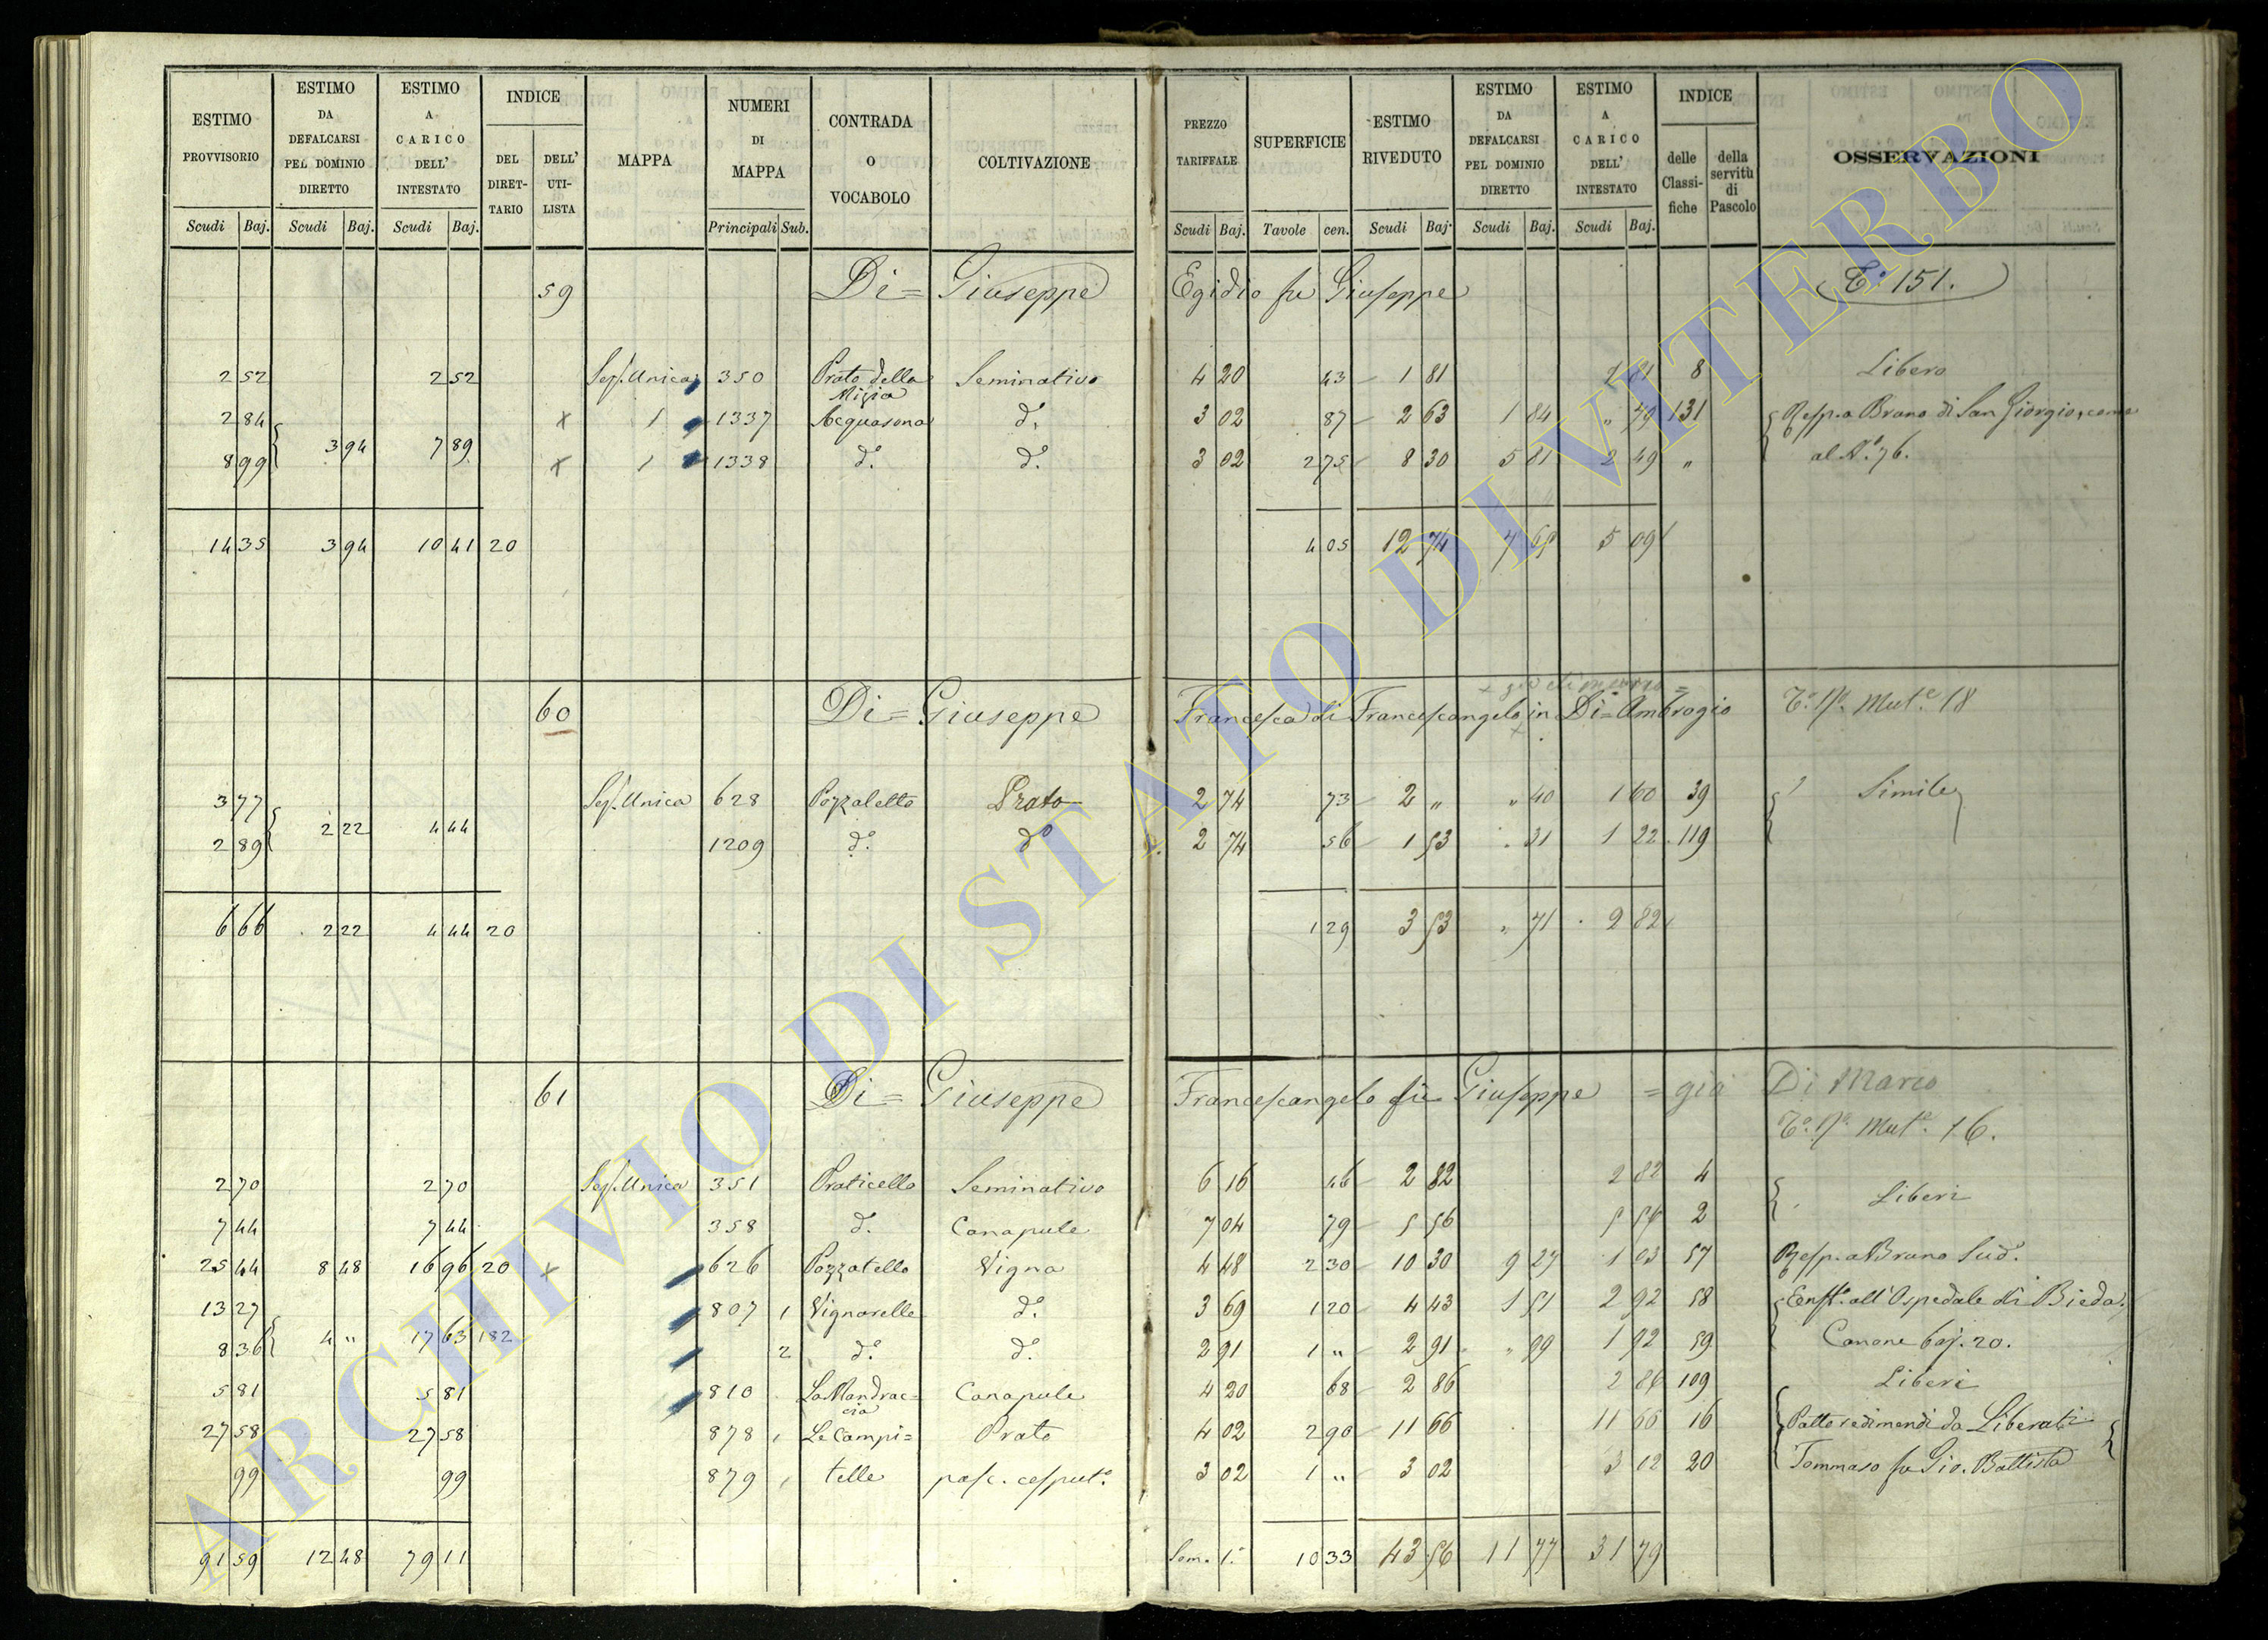 ESTIMO PROVVISORIO | ESTIMO DA DEFALCARSI PEL DOMINIO DIRETTO | ESTIMO A CARICO DELL' INTESTATO | INDICE | MAPPA | NUMERI DI MAPPA | CONTRADA O VOCABOLO | COLTIVAZIONE | PREZZO TARIFFALE | SUPERFICIE | ESTIMO RIVEDUTO | ESTIMO DA DEFALCARSI PEL DOMINIO DIRETTO | ESTIMO A CARICO DELL' INTESTATO | INDICE | OSSERVAZIONI
DEL DIRETTARIO | DELL' UTILISTA | delle Classifiche | della servitù di Pascolo
Scudi Baj. | Scudi Baj. | Scudi Baj. | Principali Sub. | Scudi Baj. | Tavole cen. | Scudi Baj. | Scudi Baj. | Scudi Baj.
59 Di= Giuseppe Egidio fu Giuseppe T.° 151.
2 52 | 2 52 | Sez. Unica | 350 | Prato della | Seminativo | 4 20 | 43 | 1 81 | 1 81 | 8 | Libero
2 84 | x | 1 | 1337 | Acquasona | d.° | 3 02 | 87 | 2 63 | 1 84 | " 79 | 131 | Resp.a Brano di San Giorgio, come
3 94 | 7 89
8 99 | x | 1 | 1338 | d.° | d.° | 3 02 | 2 75 | 8 30 | 5 81 | 2 49 | " | al N.° 76.
14 35 | 3 94 | 10 41 | 20 | 4 05 | 12 74 | 7 65 | 5 09
60 Di= Giuseppe Francesca di Francescangelo in Di= Ambrogio T.° N.° Mut.e 18
3 77 | Sez. Unica | 628 | Pozzaletto | Prato | 2 74 | 73 | 2 " | " 40 | 1 60 | 39 | Simile
2 22 | 4 44
2 89 | 1209 | d.° | d.° | 2 74 | 56 | 1 53 | 31 | 1 22 | 119
6 66 | 2 22 | 4 44 | 20 | 1 29 | 3 53 | " 71 | 2 82
61 Di= Giuseppe Francescangelo fu Giuseppe = già Di Marco
T.° N.° Mut.e 16.
2 70 | 2 70 | Sez. Unica | 351 | Praticello | Seminativo | 6 16 | 46 | 2 82 | 2 82 | 4 | Liberi
7 44 | 7 44 | 358 | d.° | Canapule | 7 04 | 79 | 5 56 | 5 56 | 2
25 44 | 8 48 | 16 96 | 20 | x | 626 | Pozzatello | Vigna | 4 48 | 2 30 | 10 30 | 9 27 | 1 03 | 57 | Resp. a Brano Sud.°
13 27 | 807 | 1 | Vignarelle | d.° | 3 69 | 1 20 | 4 43 | 1 51 | 2 92 | 58 | Enft.° all' Ospedale di Bieda.
4 " | 17 63 | 182
8 36 | 2 | d.° | d.° | 2 91 | 1 " | 2 91 | " 99 | 1 92 | 59 | Canone baj. 20.
5 81 | 5 81 | 810 | La Mandraccia | Canapule | 4 20 | 68 | 2 86 | 2 86 | 109 | Liberi
27 58 | 27 58 | 878 | Le Campi= | Prato | 4 02 | 2 90 | 11 66 | 11 66 | 16 | Patto redimendi da Liberati
99 | 99 | 879 | telle | pasc. cesput.° | 3 02 | 1 " | 3 02 | 3 02 | 20 | Tommaso fu Gio. Battista
91 59 | 12 48 | 79 11 | Som. 1.° | 10 33 | 43 56 | 11 77 | 31 79
ARCHIVIO DI STATO DI VITERBO